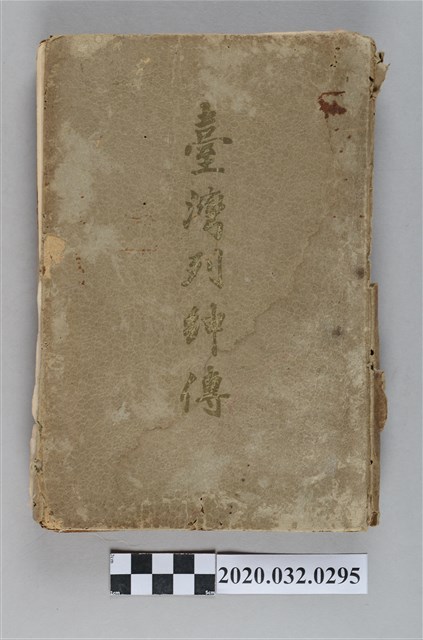 臺灣列紳傳
2020.032.0295